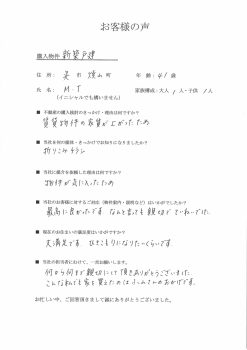 お客様の声
購入物件 新築戸建
住所： 呉市 焼山町 年齢：41歳
氏名： M・T 家族構成・大人 人・子供 人
(イニシャルでも構いません)
■ 不動産の購入検討のきっかけ・理由は何ですか？
賃貸物件の家賃が上がったため
■ 当社を何の媒体・きっかけでお知りになりましたか？
折りこみチラシ
■ 当社に仲介を依頼した理由は何ですか？
物件が気に入ったため
■ 当社のお客様に対するご対応（物件案内・説明など）はいかがでしたか？
最高に良かったです。なんと言っても親切でていねいでした。
■ 現在のお住まいの満足度はいかがですか？
大満足です。ひとこもりになりたいくらいです
■ 当社の担当者にむけて、一言お願いします。
何から何まで親切にして頂きありがとうございました。
こんなわたしも家を買えたのは さんのおかげです。
お忙しい中、ご回答頂きまして誠にありがとうございました。